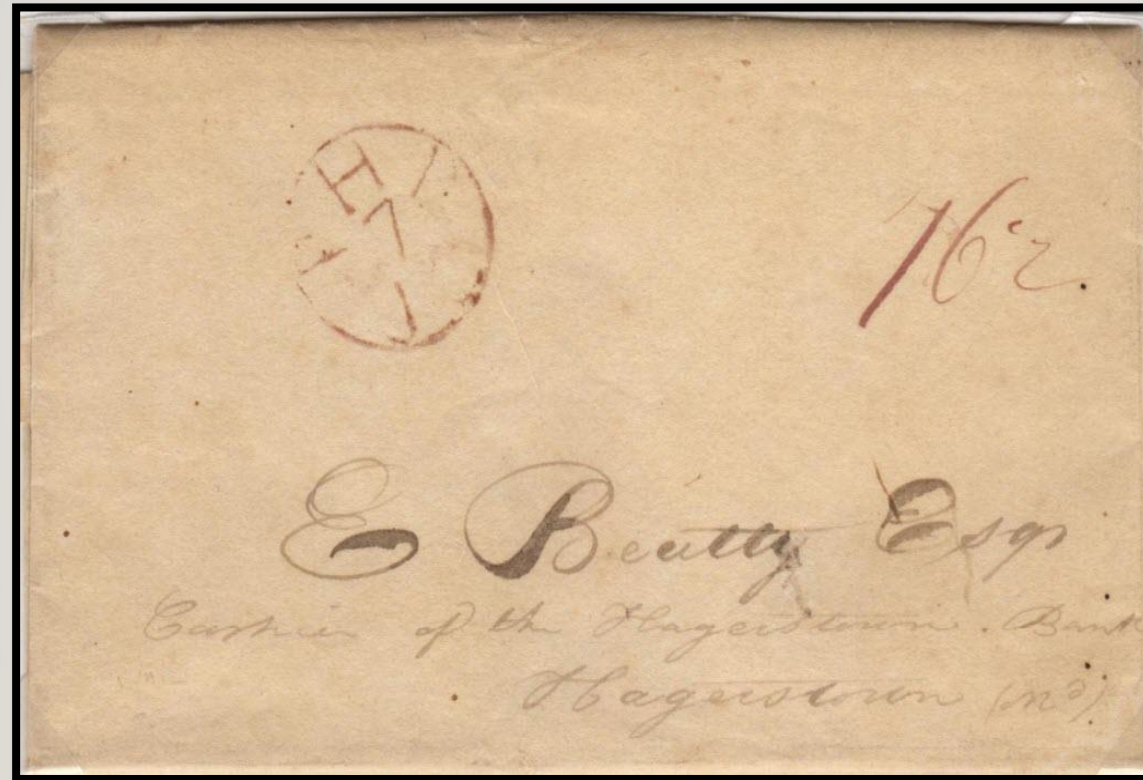 7
16 2
E Beatty Esqr
Cashier of the Hagerstown Bank
Hagerstown (Md)